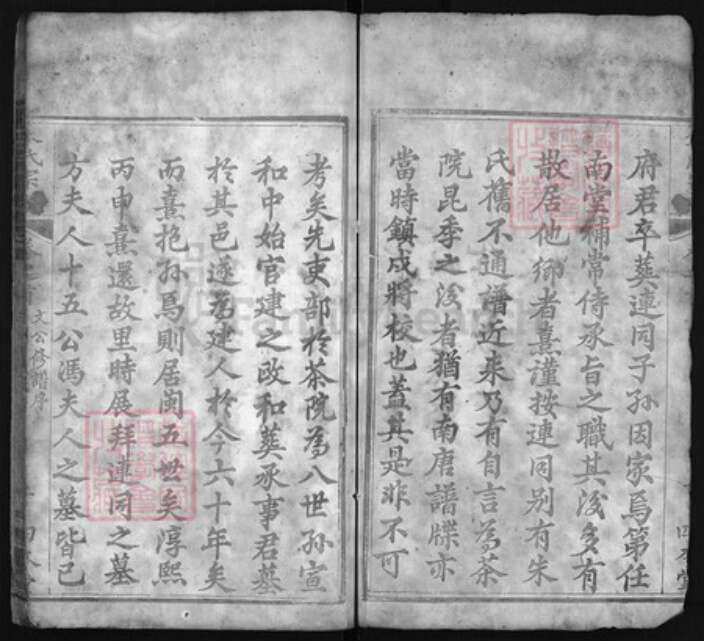 府君卒葬連同子孫因家焉第任
南堂補常侍承旨之職其後多有
散居他鄉者熹謹按連同別有朱
氏舊不通譜近來乃有自言為茶
院昆季之後者猶有南唐譜牒亦
當時鎮戍將校也蓋其是非不可
考矣先吏部於茶院為八世孫宣
和中始官建之政和葬承事君墓
於其邑遂為建人於今六十年矣
而熹抱孫焉則居閩五世矣淳熙
丙申熹還故里時展拜連同之墓
方夫人十五公馮夫人之墓皆已
氏宗
文公修譜序